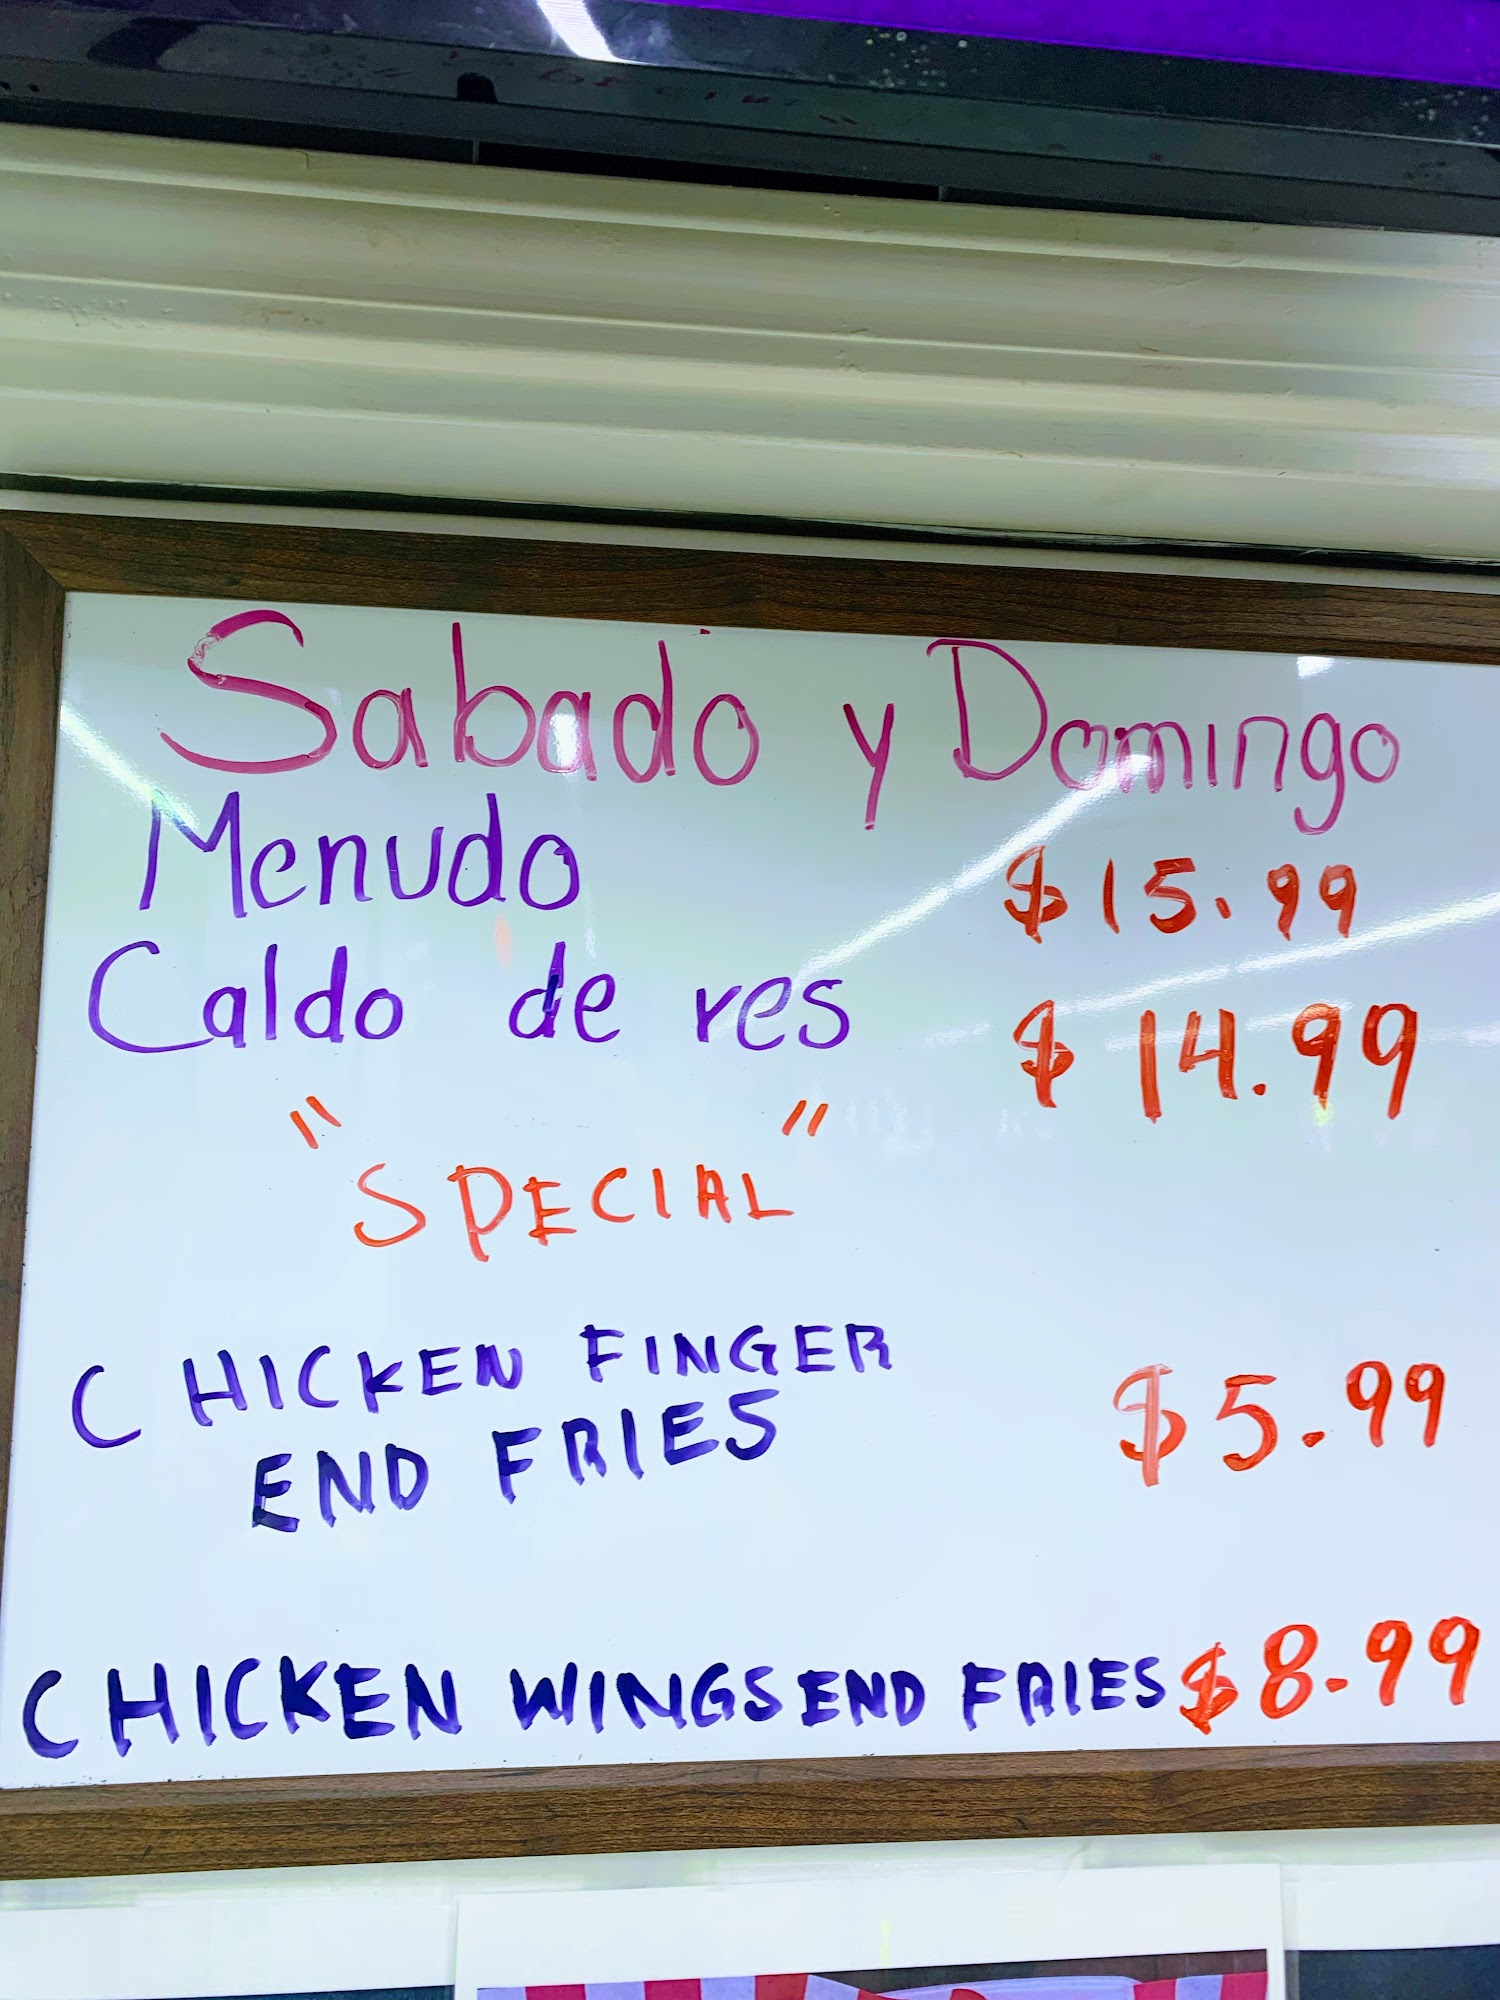 Sabado y Domingo
Menudo $15.99
Caldo de res $14.99
"SPECIAL"
CHICKEN FINGER
END FRIES $5.99
CHICKEN WINGS END FRIES $8.99